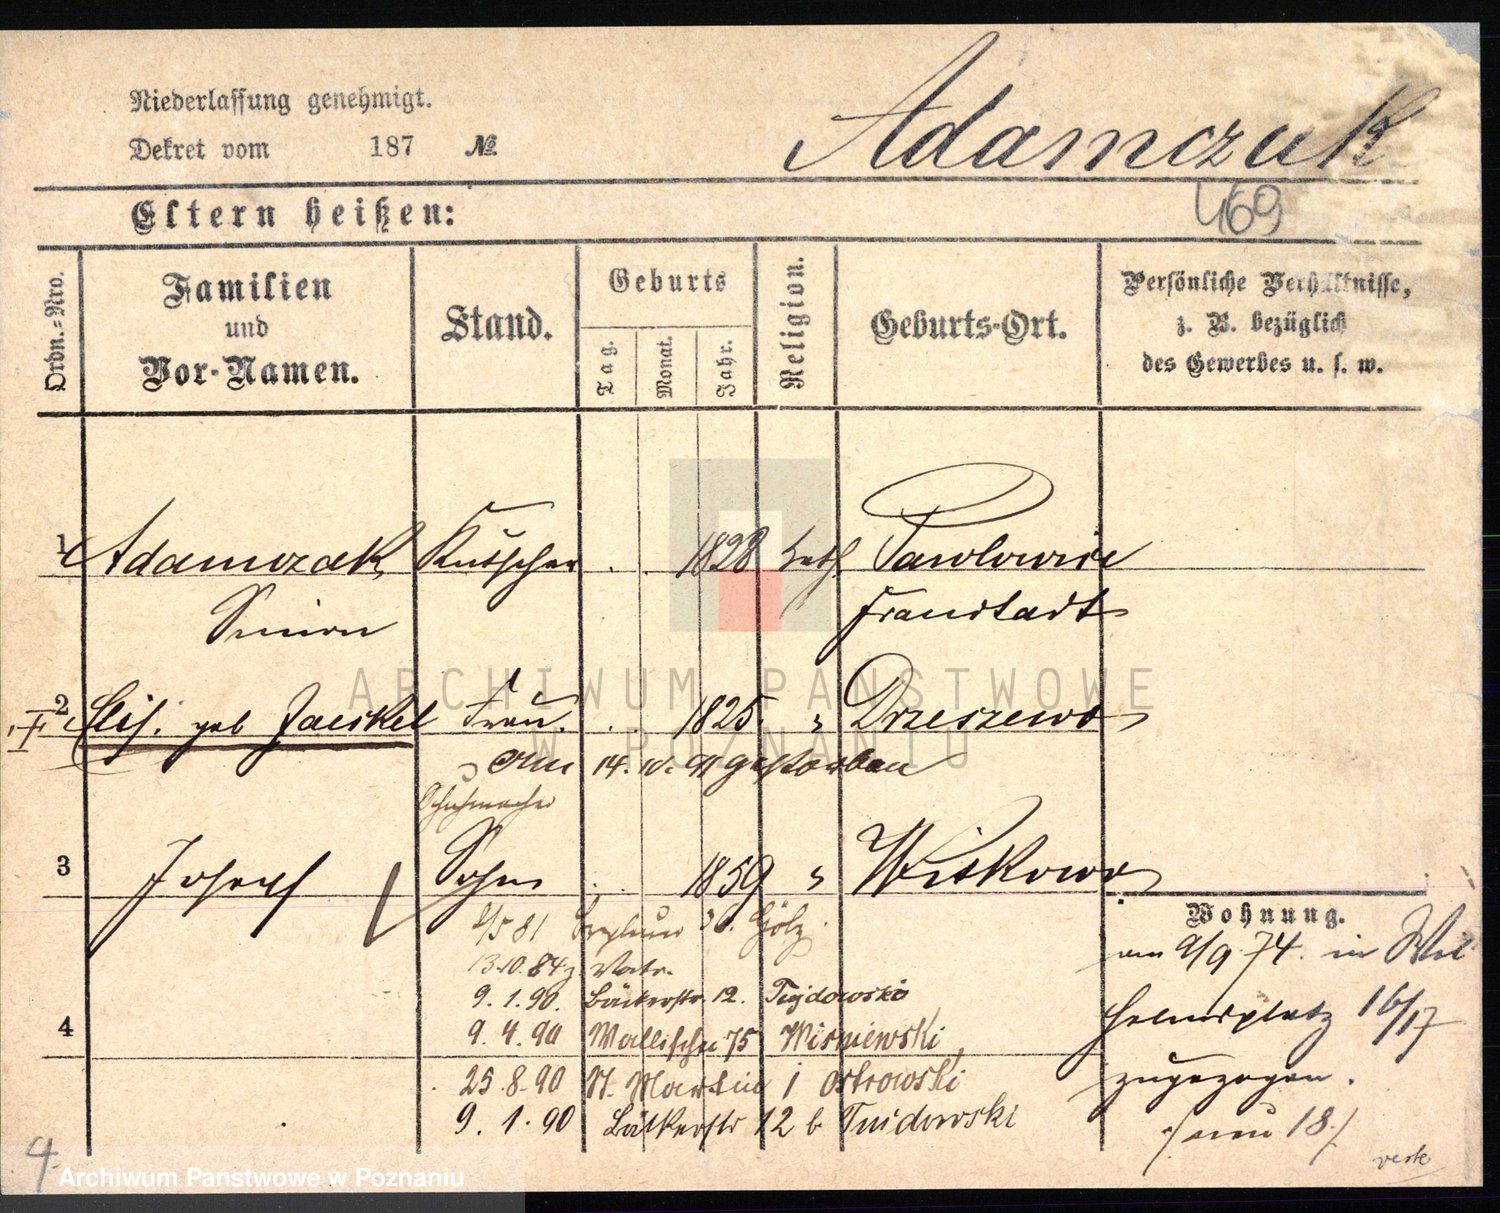 Niederlassung genehmigt.
Dekret vom 187 №
Adamczak
469
Eltern heißen:
Ordn.=Nro.
Familien
und
Vor-Namen.
Stand.
Geburts
Tag.
Monat.
Jahr.
Religion.
Geburts-Ort.
Persönliche Verhältnisse,
z. B. bezüglich
des Gewerbes u. s. w.
1 Adamczak Kutscher 1828 kath Pawlowice
Simon Fraustadt
2 Elis. geb Jaeskel Frau 1825. " Drzeszewo
am 14. 10. 91 gestorben
Schuhmacher
3 Joseph Sohn 1859 " Witkowo
Wohnung.
2/5 81 b. Gölz
am 9/9 74. in Wil
13.10.84 z. Vatr.
helmsplatz 16/17
9. 1. 90. Bäckerstr. 12. Tujdowski
4
9. 4. 90 Wallischei 75 Wisniewski
zugezogen.
25. 8. 90 St. Martin 1 Ostrowski
9. 1. 90 Bäckerstr 12 b Tuidowski
18
4.
ARCHIWUM PAŃSTWOWE
W POZNANIU
Archiwum Państwowe w Poznaniu